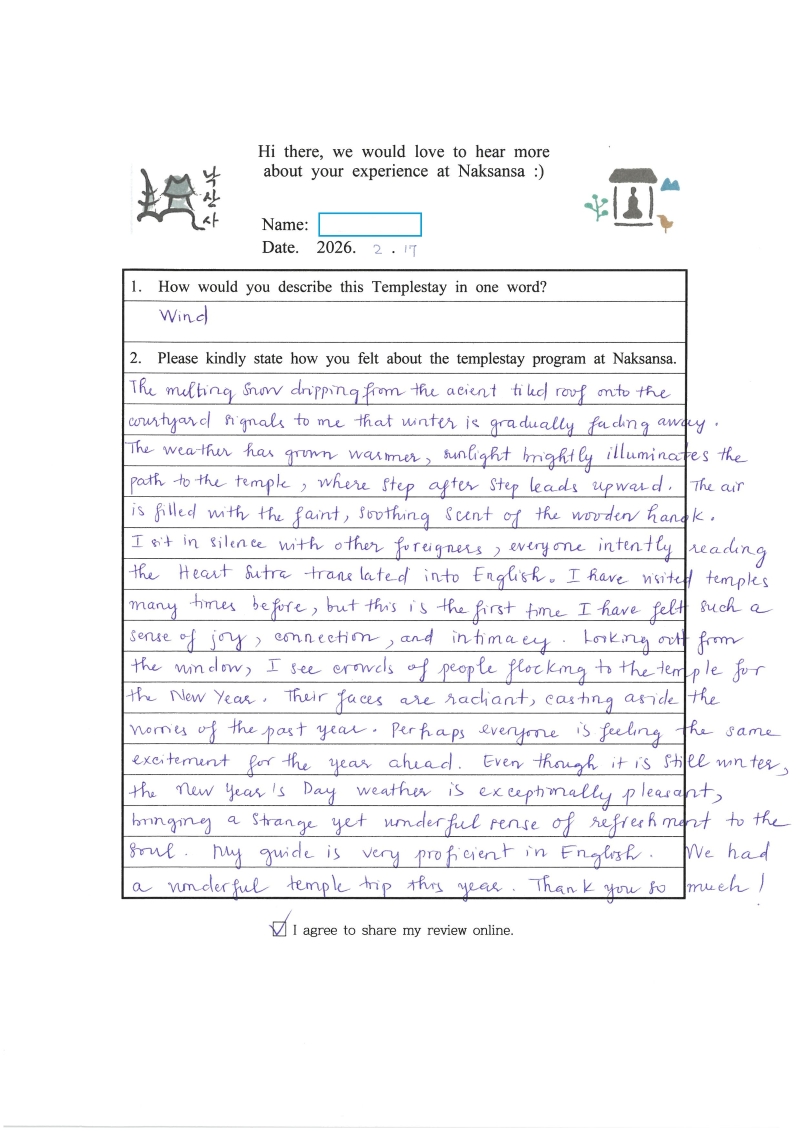 Hi there, we would love to hear more
about your experience at Naksansa :)
낙
산
사
Name:
Date. 2026. 2 . 17
1. How would you describe this Templestay in one word?
Wind
2. Please kindly state how you felt about the templestay program at Naksansa.
The melting snow dripping from the acient tiled roof onto the
courtyard signals to me that winter is gradually fading away.
The weather has grown warmer, sunlight brightly illuminates the
path to the temple, where step after step leads upward. The air
is filled with the faint, soothing scent of the wooden hanok.
I sit in silence with other foreigners, everyone intently reading
the Heart Sutra translated into English. I have visited temples
many times before, but this is the first time I have felt such a
sense of joy, connection, and intimacy. Looking out from
the window, I see crowds of people flocking to the temple for
the New Year. Their faces are radiant, casting aside the
worries of the past year. Perhaps everyone is feeling the same
excitement for the year ahead. Even though it is still winter,
the New Year's Day weather is exceptionally pleasant,
bringing a strange yet wonderful sense of refreshment to the
soul. My guide is very proficient in English. We had
a wonderful temple trip this year. Thank you so much!
I agree to share my review online.